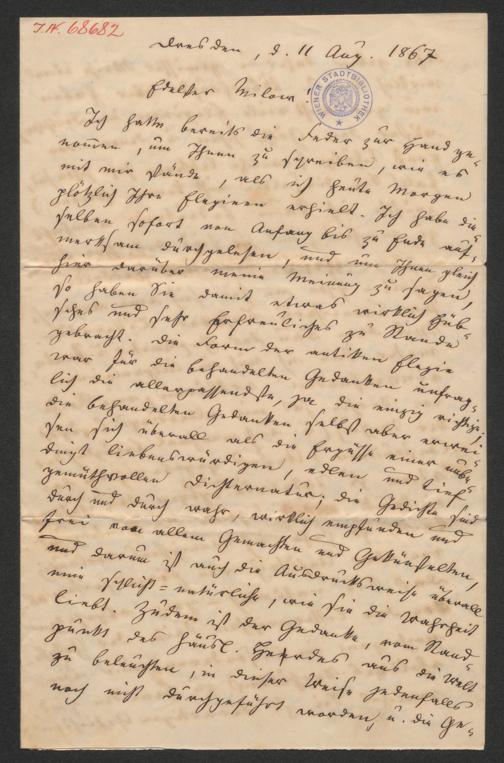 I.N. 68682
Dresden, d. 11 Aug. 1867
WIENER STADTBIBLIOTHEK
Edelster Milow!
Ich hatte bereits die Feder zur Hand ge-
nomen, um Ihnen zu schreiben, wie es
mit mir stände, als ich heute Morgen
plötzlich Ihre Elegieen erhielt. Ich habe die-
selben sofort von Anfang bis zu Ende auf-
merksam durchgelesen, und um Ihnen gleich
hier darüber meine Meinung zu sagen,
so haben Sie damit etwas wirklich Hüb-
sches und sehr Erfreuliches zu Stande
gebracht. Die Form der antiken Elegie
war für die behandelten Gedanken unfrag-
lich die allerpassendste, ja die einzig richtige;
die behandelten Gedanken selbst aber erwei-
sen sich überall als die Ergüsse einer unbe-
dingt liebenswürdigen, edlen und tief
gemüthvollen Dichternatur; die Gedichte sind
durch und durch wahr, wirklich empfunden und
frei von allem Gemachten und Gekünstelten,
und darum ist auch die Ausdrucksweise überall
eine schlicht-natürliche, wie sie die Wahrheit
liebt. Zudem ist der Gedanke, vom Stand-
punkt des häusl. Heerdes aus die Welt
zu beleuchten, in dieser Weise jedenfalls
noch nicht durchgeführt worden, u. die Ge-